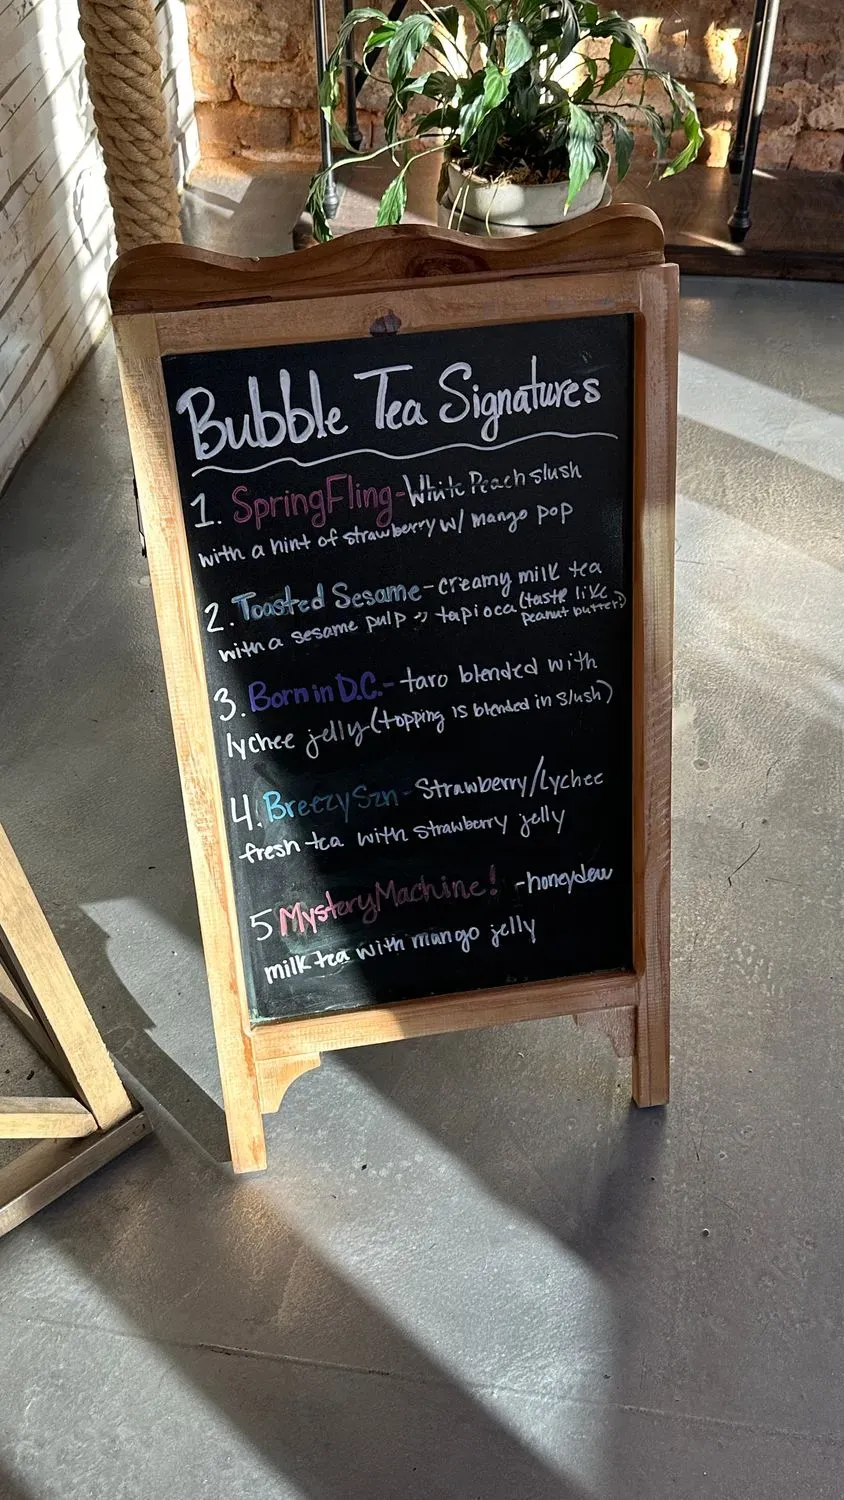 Bubble Tea Signatures
1. SpringFling - White Peach slush
with a hint of strawberry w/ mango pop
2. Toasted Sesame - creamy milk tea
with a sesame pulp tapioca (taste like
peanut butter)
3. Born in D.C. - taro blended with
lychee jelly (topping is blended in slush)
4. BreezySzn - Strawberry/Lychee
fresh tea with strawberry jelly
5 MysteryMachine! - honeydew
milk tea with mango jelly